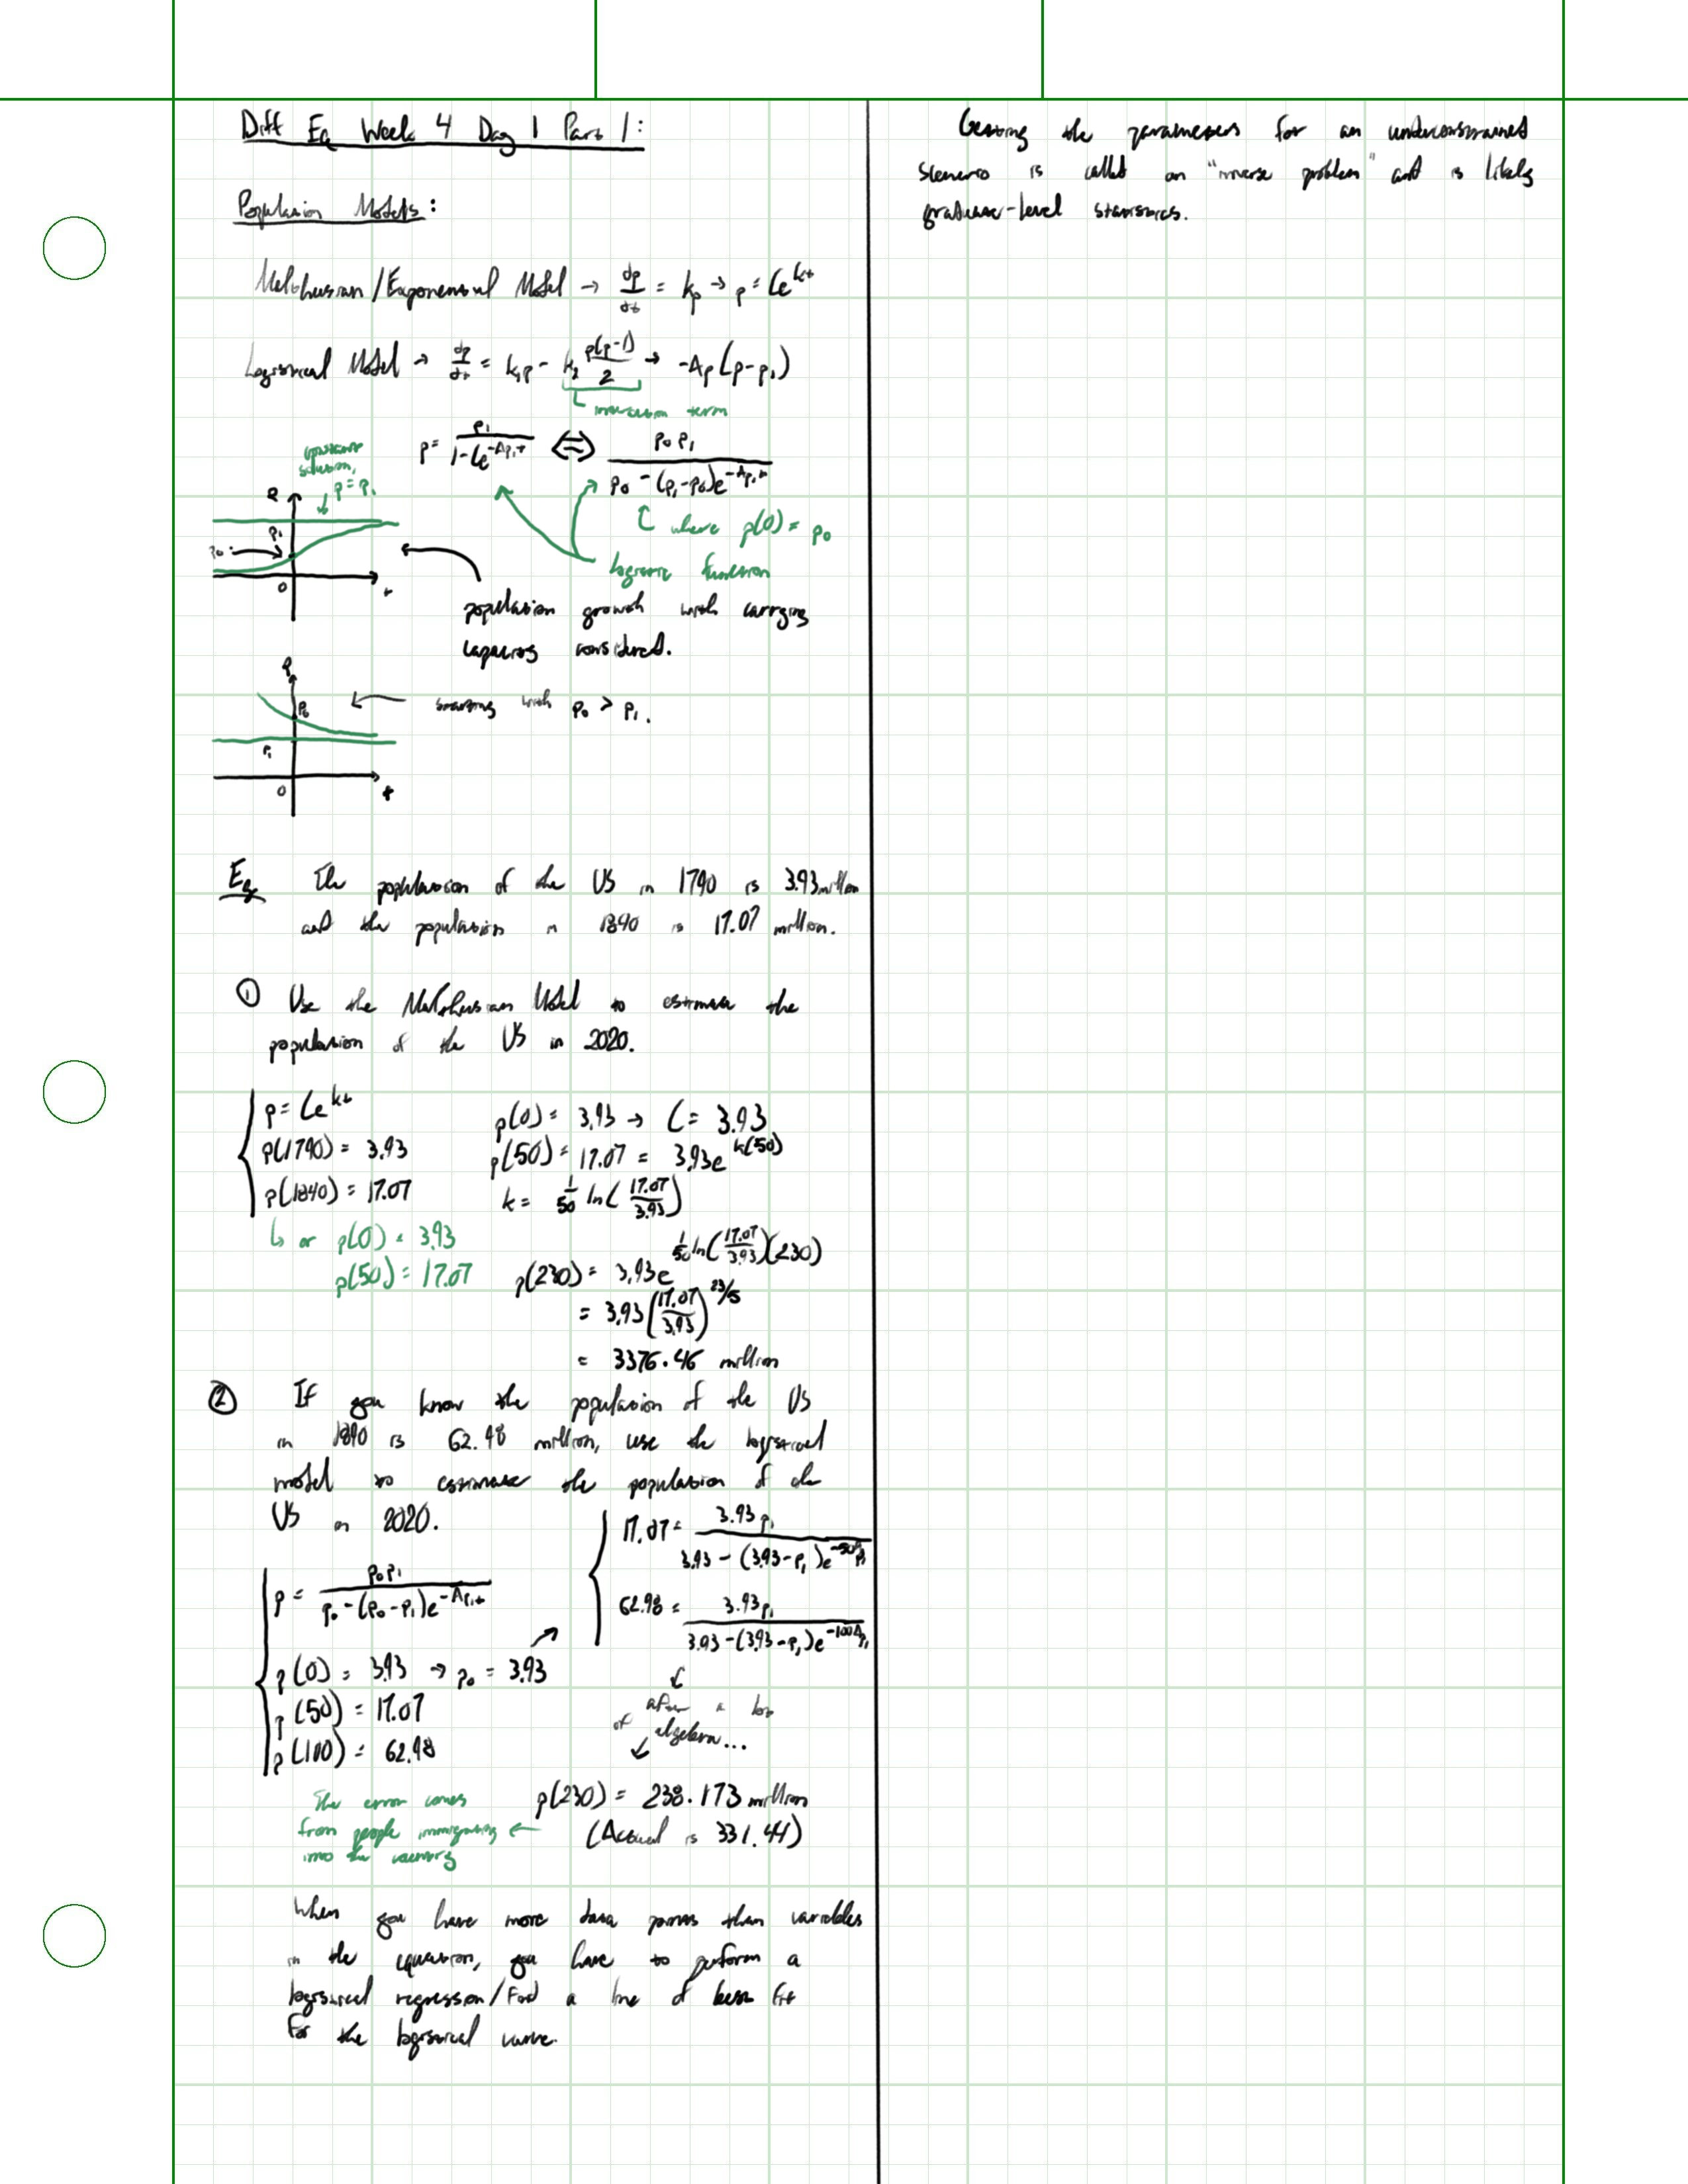 Diff Eq Week 4 Day 1 Part 1:
Population Models:
Malthusian/Exponential Model → dp/dt = kp → p = Ce^kt
Logistical Model → dp/dt = k₁p - k₂ p(p-1)/2 → -Ap(p-p₁)
interaction term
p = p₁/(1-Ce^-Ap₁t) ⟺ p₀p₁/(p₀-(p₁-p₀)e^-Ap₁t)
constant
solution,
p = p₁
where p(0) = p₀
logistic function
p
p₁
p₀
0
t
population growth with carrying
capacity considered.
p
p₀
p₁
0
t
starting with p₀ > p₁.
Eg The population of the US in 1790 is 3.93 million
and the population in 1840 is 17.07 million.
① Use the Malthusian Model to estimate the
population of the US in 2020.
p = Ce^kt
p(1790) = 3.93
p(1840) = 17.07
↳ or p(0) = 3.93
p(50) = 17.07
p(0) = 3.93 → C = 3.93
p(50) = 17.07 = 3.93e^k(50)
k = 1/50 ln(17.07/3.93)
p(230) = 3.93e^1/50 ln(17.07/3.93)(230)
= 3.93(17.07/3.93)^23/5
= 3376.46 million
② If you know the population of the US
in 1890 is 62.98 million, use the logistical
model to estimate the population of the
US in 2020.
p = p₀p₁/(p₀-(p₀-p₁)e^-Ap₁t)
p(0) = 3.93 → p₀ = 3.93
p(50) = 17.07
p(100) = 62.98
17.07 = 3.93p₁/(3.93-(3.93-p₁)e^-50Ap₁)
62.98 = 3.93p₁/(3.93-(3.93-p₁)e^-100Ap₁)
after a lot
of algebra...
p(230) = 238.173 million
(Actual is 331.44)
The error comes
from people immigrating
into the country
When you have more data points than variables
in the equation, you have to perform a
logistical regression/Find a line of best fit
for the logistical curve.
Getting the parameters for an underconstrained
scenario is called an "inverse problem" and is likely
graduate-level statistics.